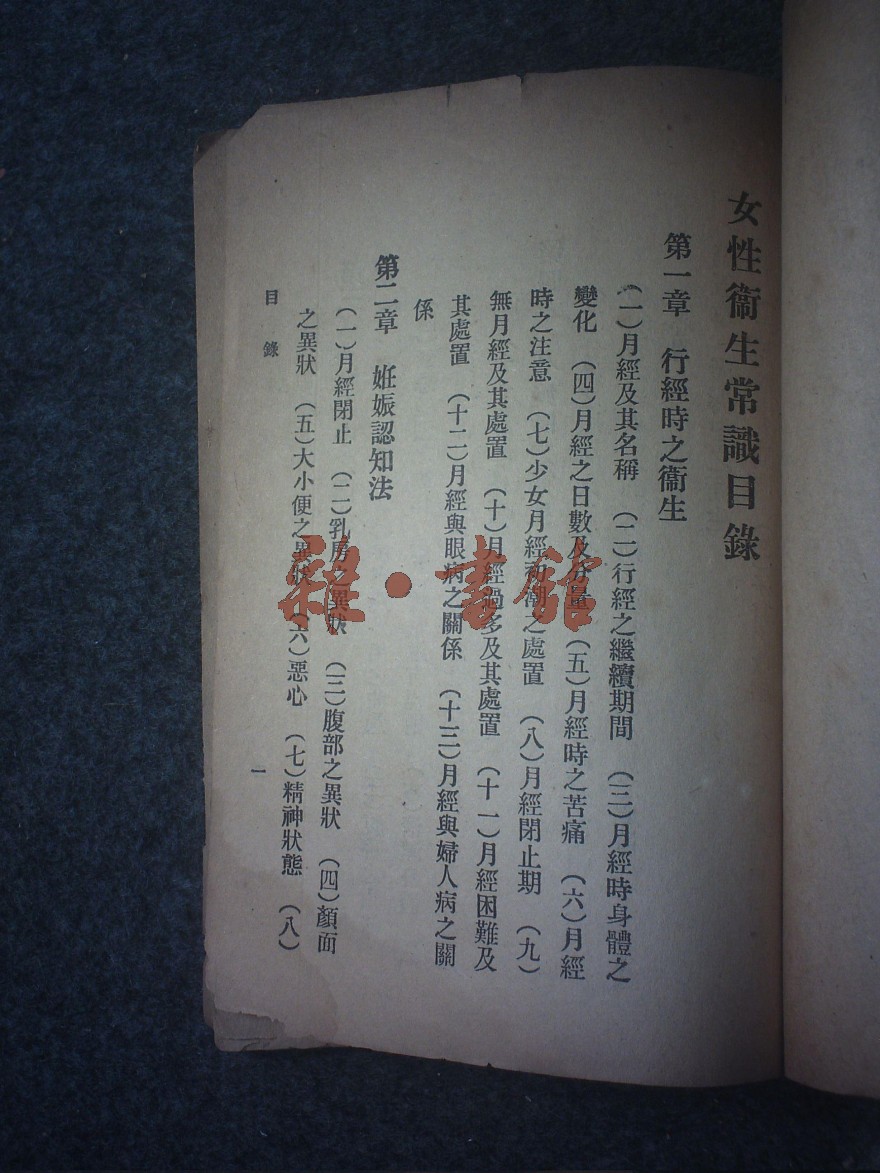 女性衞生常識目錄
第一章　行經時之衞生
（一）月經及其名稱　（二）行經之繼續期間　（三）月經時身體之
變化　（四）月經之日數及分量　（五）月經時之苦痛　（六）月經
時之注意　（七）少女月經初潮之處置　（八）月經閉止期　（九）
無月經及其處置　（十）月經過多及其處置　（十一）月經困難及
其處置　（十二）月經與眼病之關係　（十三）月經與婦人病之關
係
第二章　妊娠認知法
（一）月經閉止　（二）乳房之異狀　（三）腹部之異狀　（四）顏面
之異狀　（五）大小便之異狀　（六）惡心　（七）精神狀態　（八）
目錄
一
雜·書館